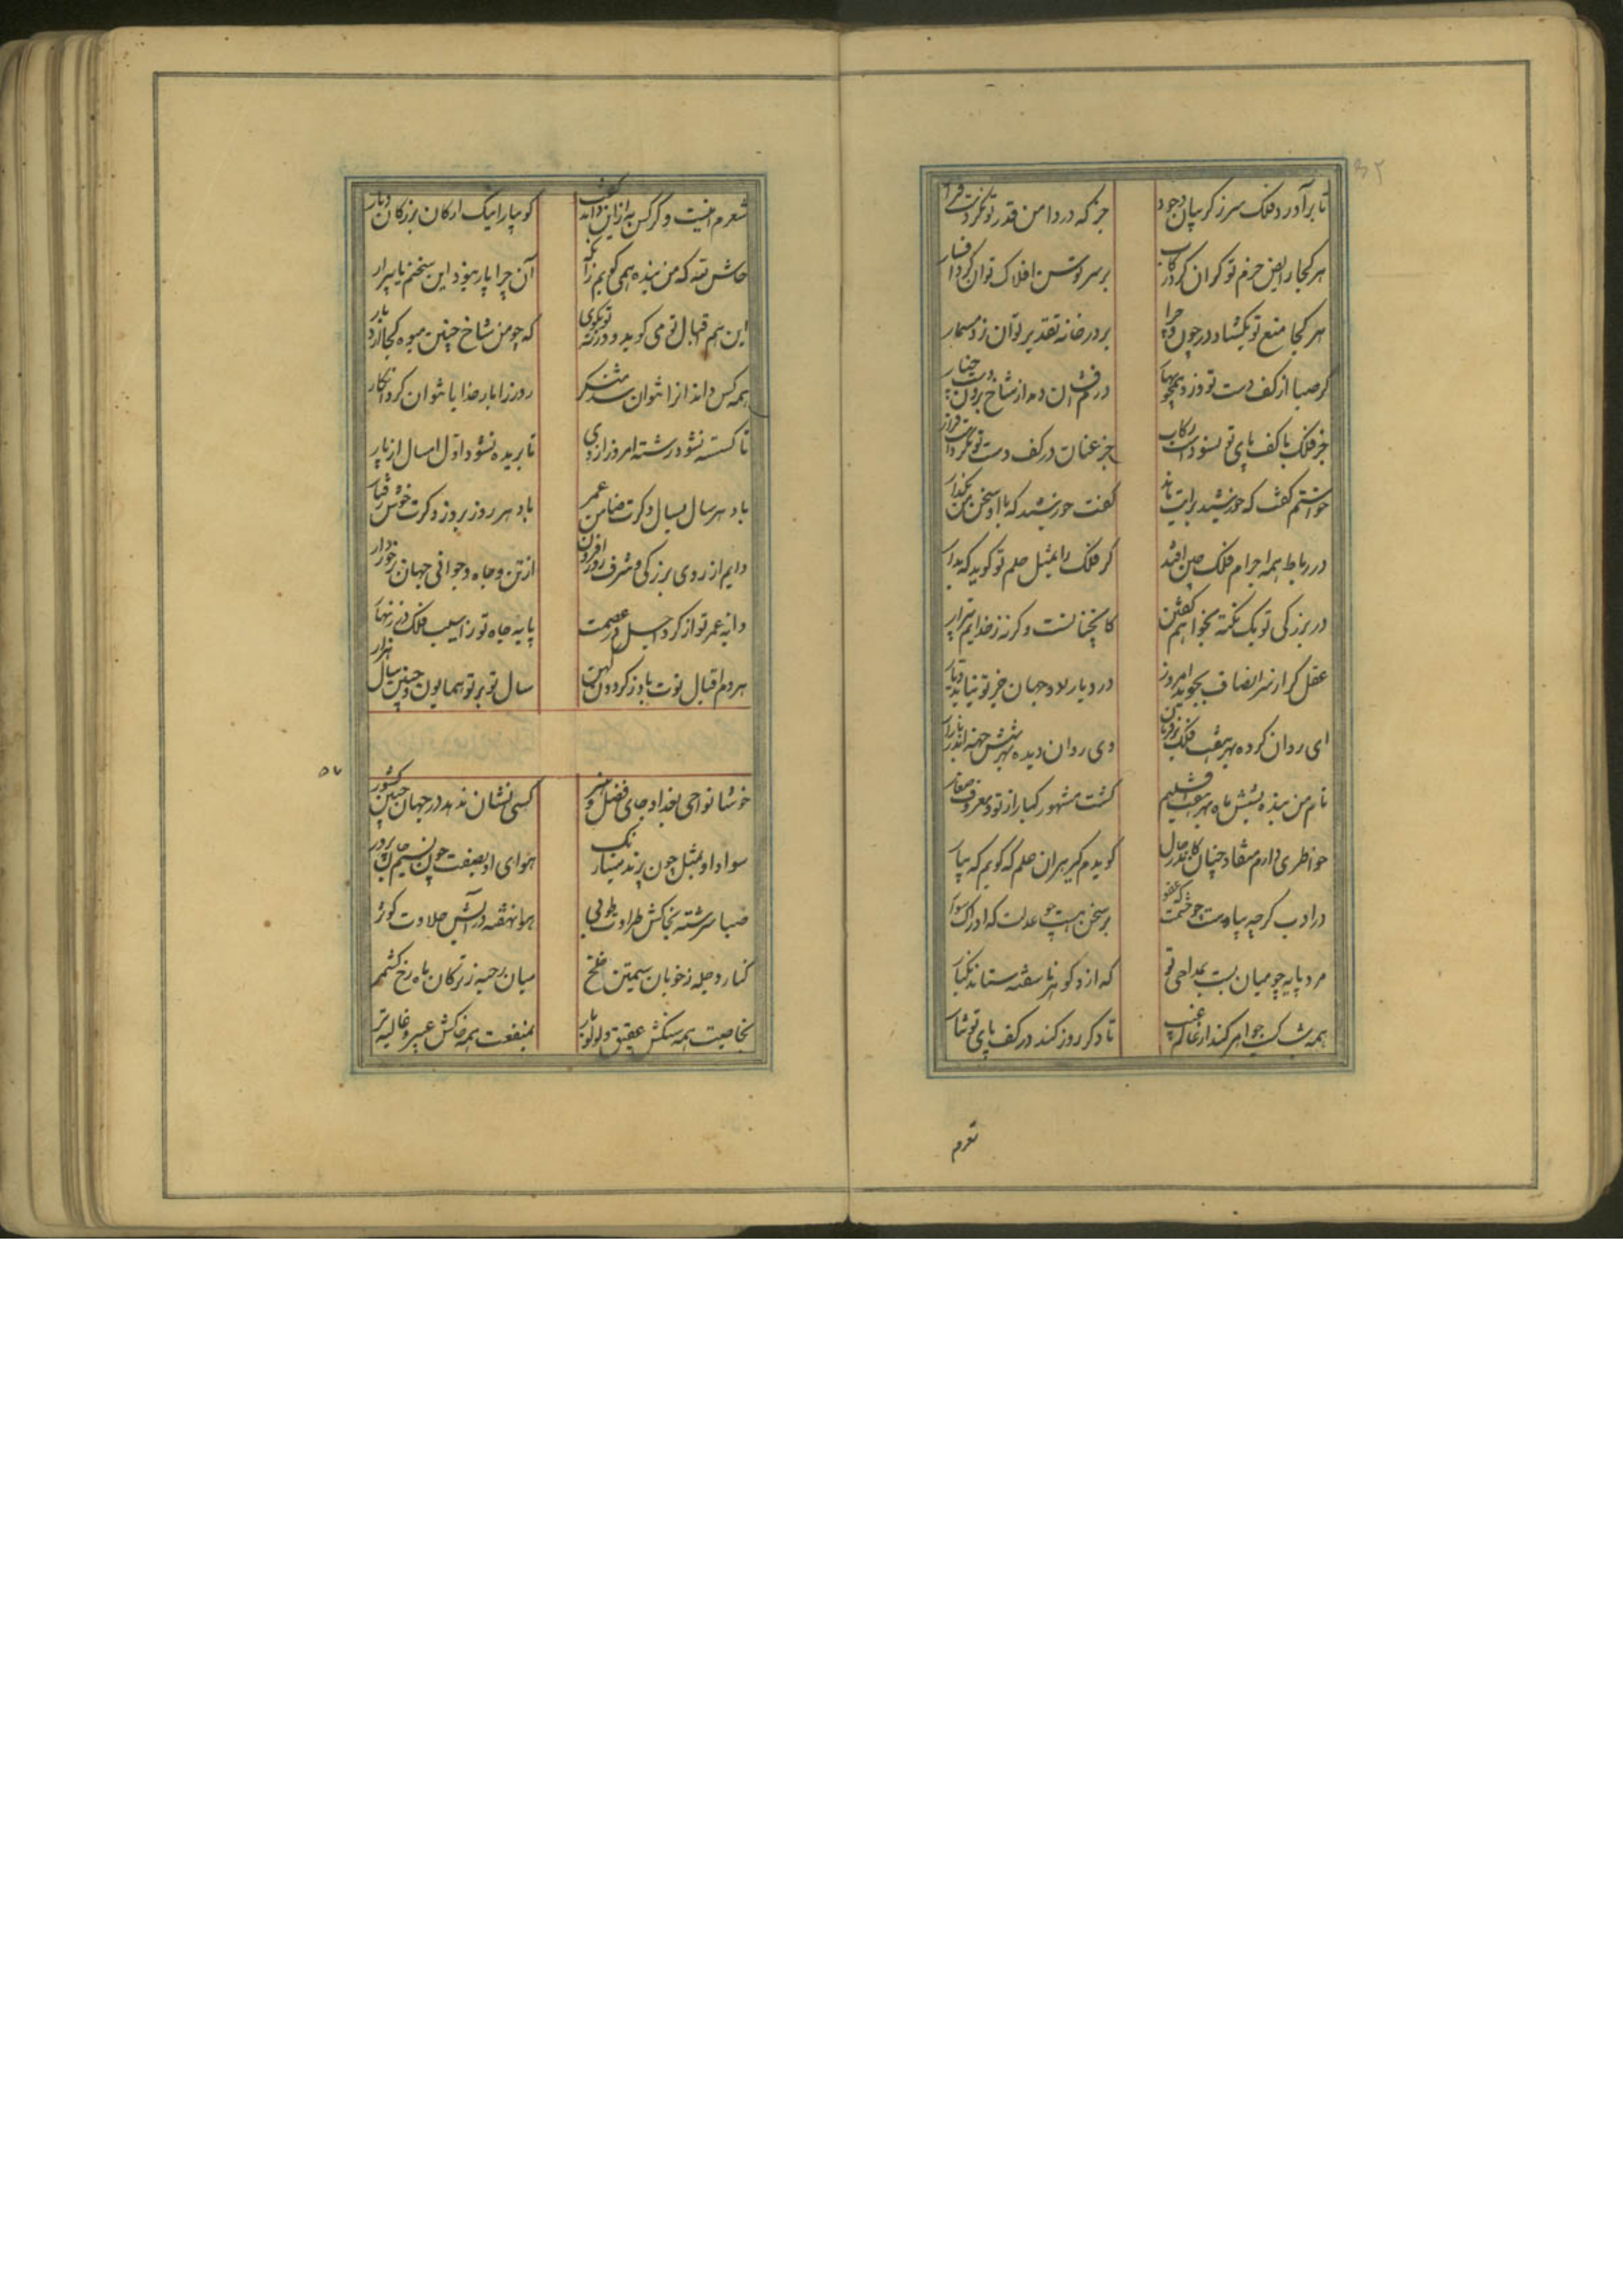 ۳۲
تا برآورد فلک سر ز گریبان وجود جز که در دامن قدر تو نکردست قرار
هر کجا رایض حزم تو گران کرد رکاب بر سر توسن افلاک توان کرد افسار
هر کجا منع تو بگشاد در چون و چرا بر در خانه تقدیر توان زد مسمار
گر صبا از کف دست تو وزد در درم افشان دمد از شاخ برون دست چنار
جز فلک با کف پای تو نسودست رکاب جز عنان در کف دست تو نکردست قرار
خواستم گفت که خورشید برایت ماند گفت خورشید که با او سخن من بگذار
در رباط همه اجرام فلک صبی افتد گر فلک را بمثل حلم تو گوید که بدار
در بزرگی تو یک نکته بخواهم گفتن کانچنانست و گرنه ز خدایم بیزار
عقل گر از سر انصاف بجوید امروز در دیار دو جهان جز تو نیابد دیار
ای روان کرده بهر هفت فلک بر فرمان وی روان دیده بهر شش جهت اندر بازار
نام من بنده بشش ماه بهر هفت اقلیم گشت مشهور کبار از تو و معروف صغار
خواطری دارم منقاد چنان کاندر حال گویدم گیر هر آن علم که گویم که بیار
در ادب گرچه پیاده‌ست چو خشمت که عفو بر سخن هست چو عدلت که ادراک سوار
مرد پایه چو میان بست بمداحی تو که از دکوتر ناسفته ستاند بکنار
همه شب کسب جواهر کند از عالم غیب تا دگر روز کند در کف پای تو نثار
شعرم
شعرم اینست و گر کس به ازین داند گفت گو بیار اینک ارکان بزرگان دیار
حاش لله که من بنده همی گویم زآنکه آن چرا پار نبود این سخنم یا پیرار
این هم اقبال تو می گوید و ورنه تو بگوی که چو من شاخ چنین میوه کجا آرد بار
همه کس داند و آنرا نتوان شد منکر روز را بار خدایا نتوان کرد انکار
تا گسسته نشود رشته امروز از دی تا بریده نشود اول امسال از پار
باد هر سال بسال دگرت ضامن عمر باد هر روز بروز دگرت خوش رفتار
دایم از روی بزرگی و شرف روزافزون از تن و جاه و جوانی جهان برخوردار
دانه عمر تو از گرد اجل در عصمت پایه جاه تو ز آسیب فلک در زنهار
هر دم اقبال نوت باد ز گردون کهن سال نو بر تو همایون و چنین سال هزار
۵۷
خوشا نواحی بغداد جای فضل و هنر کسی نشان ندهد در جهان چنین کشور
سواد او بمثل چون پرند مینارنگ هوای او بصفت چون نسیم جان پرور
صبا سرشته بخاکش طراوت طوبی هوا نهفته در آبش حلاوت کوثر
کنار دجله ز خوبان سیمتن خلخ میان رحبه ز ترکان ماه رخ کشمر
بخاصیت همه سنگش عقیق و لولو بار بمنفعت همه خاکش عبیر و غالیه بر